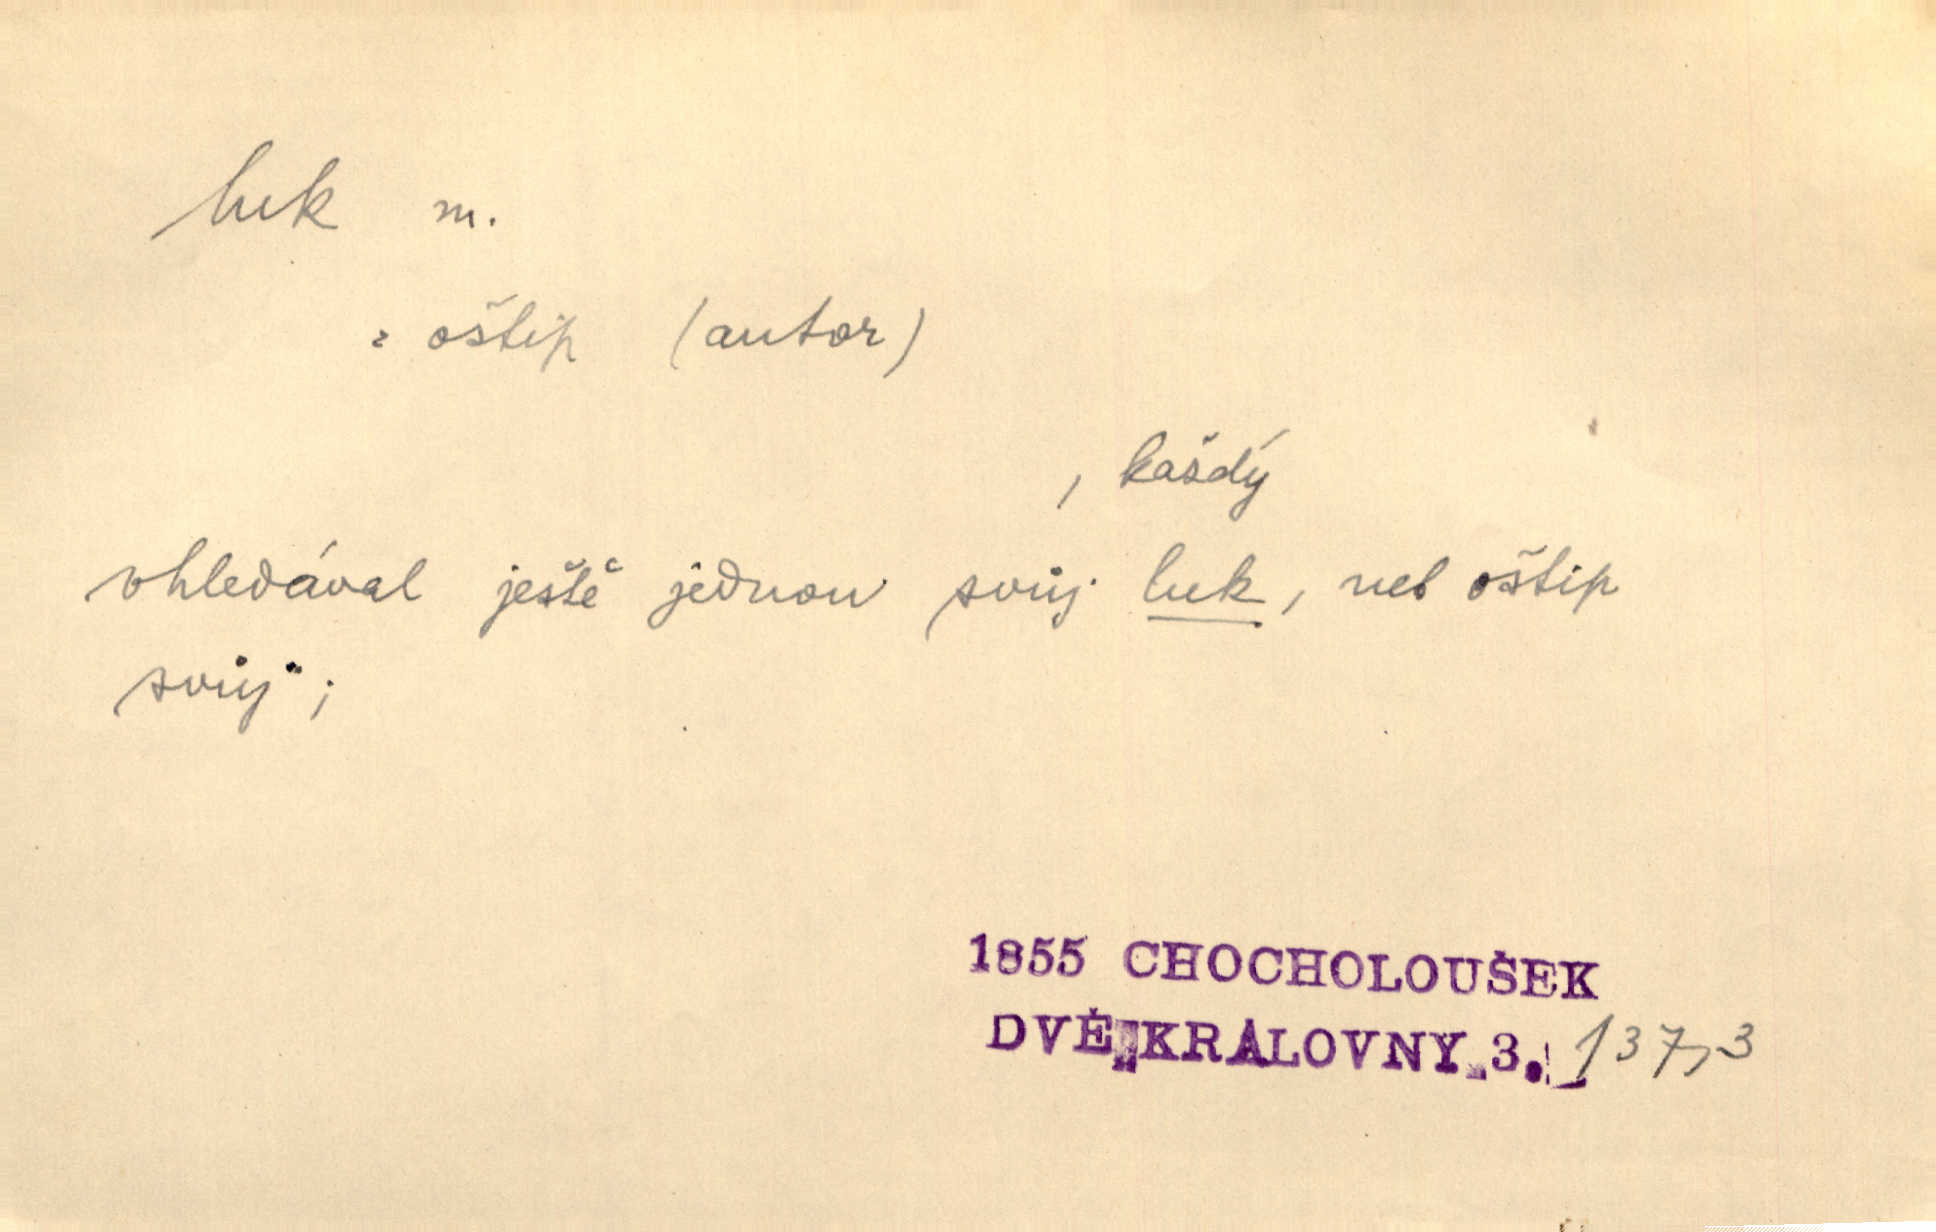 luk m.
= oštip (autor)
, každý
ohledával ještě jednou svůj luk, neb oštip
svůj";
1855 CHOCHOLOUŠEK
DVĚ KRÁLOVNY 3. 137,3